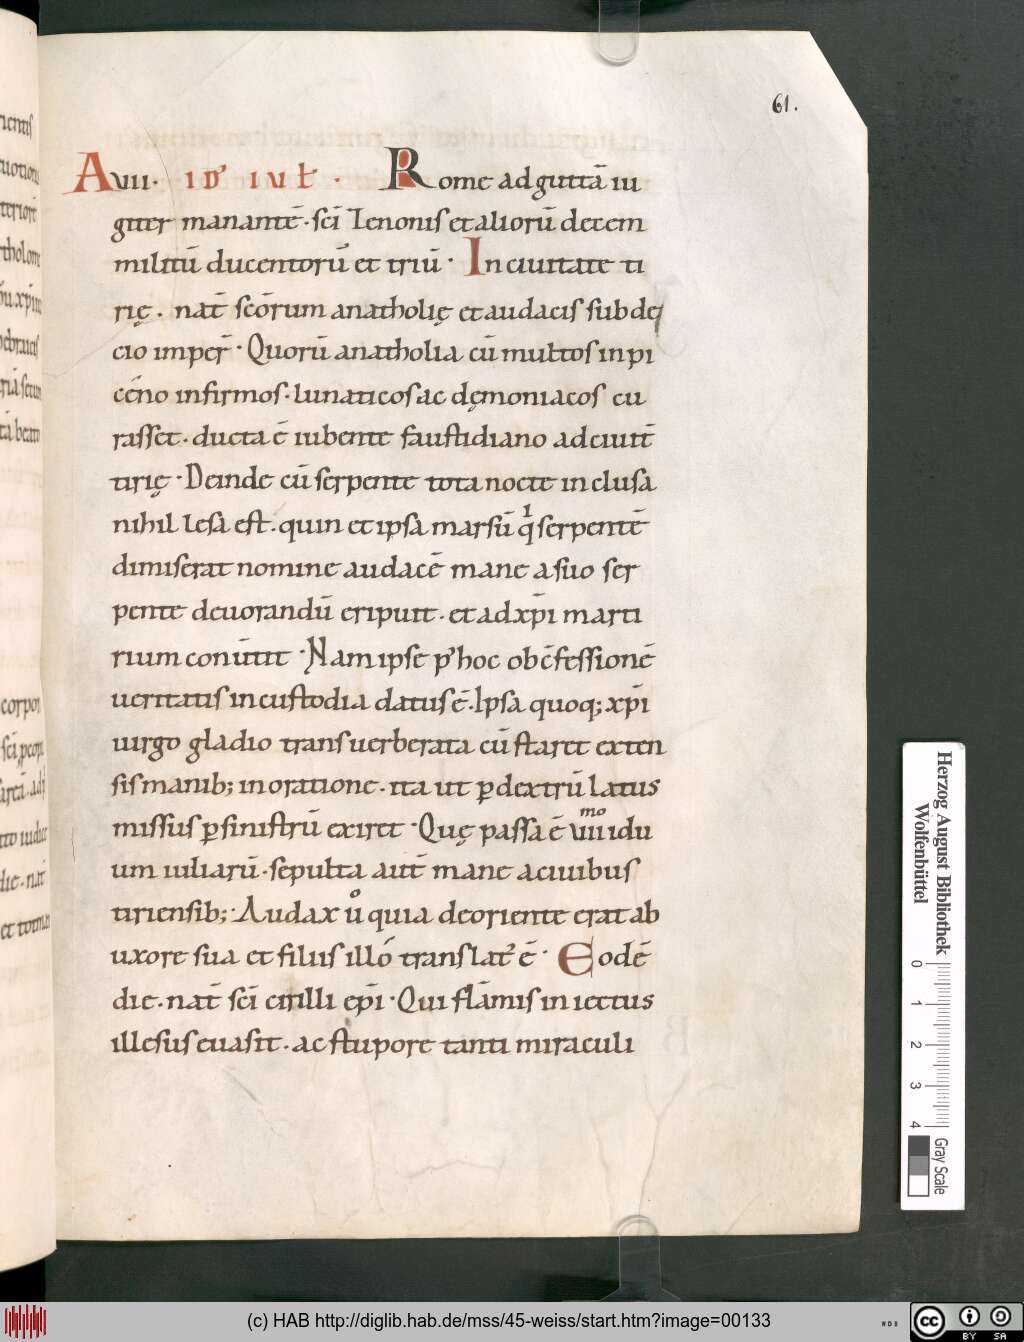 61.
A vii · id' iul · Rome ad guttā iu
giter manantē · sc̄i Zenonis et aliorū decem
militū ducentorū et triū · In ciuitate ti
rię · nat̄ sc̄orum anatholię et audacis sub de
cio imper̄ · Quorū anatholia cū multos in pi
cēno infirmos · lunaticos ac dęmoniacos cu
rasset · ducta ē iubente faustidiano ad ciuit̄
tirię · Deinde cū serpente tota nocte inclusa
nihil lesa est · quin et ipsa marsū qi serpentē
dimiserat nomine audacē mane a suo ser
pente deuorandū eripuit · et ad xp̄i marti
rium conūtit · Nam ipse p' hoc ob c̄fessionē
ueritatis in custodia datus ē · Ipsa quoq; xp̄i
uirgo gladio transuerberata cū staret exten
sis manib; in oratione · ita ut ꝑ dextrū latus
missus ꝑ sinistrū exiret · Quę passa ē viimo idu
um iuliarū · sepulta aut̄ mane a ciuibus
tiriensib; · Audax ūo quia de oriente erat ab
uxore sua et filiis illó translat' ē · Eodē
die · nat̄ sc̄i cirilli ep̄i · Qui flāmis iniectus
illesus euasit · ac stupore tanti miraculi
ientis
corpor
et tormen
Herzog August Bibliothek
Wolfenbüttel
0 1 2 3 4
Gray Scale
(c) HAB http://diglib.hab.de/mss/45-weiss/start.htm?image=00133
WDB
cc BY SA